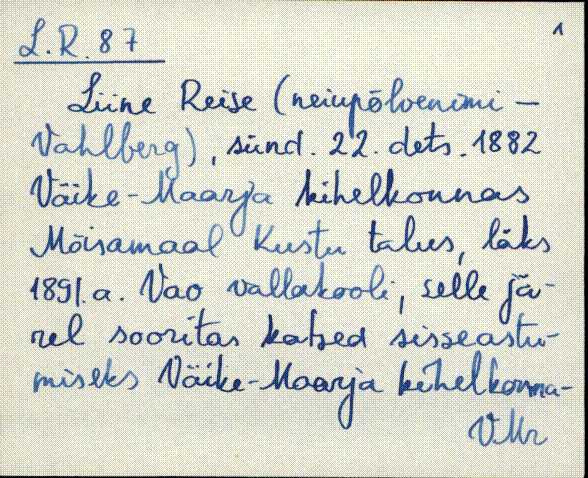 1
L.R. 87
Liine Reise (neiupõlvenimi –
Vahlberg), sünd. 22. dets. 1882
Väike-Maarja kihelkonnas
Mõisamaal Kustu talus, läks
1891. a. Vao vallakooli, selle jä-
rel sooritas katsed sisseastu-
miseks Väike-Maarja kihelkonna-
VMr